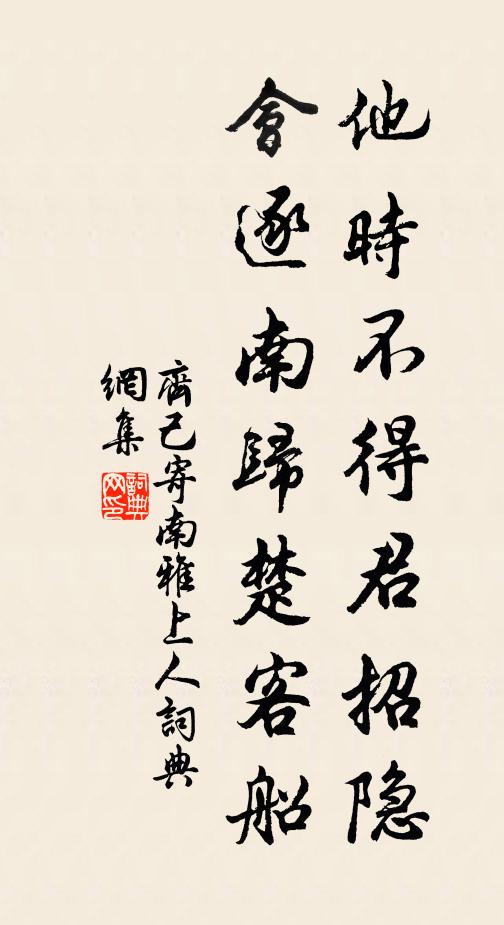 他時不得君招隐
會逐南歸楚客船
齊己寄南雅上人詞典
網集
詞典
网印